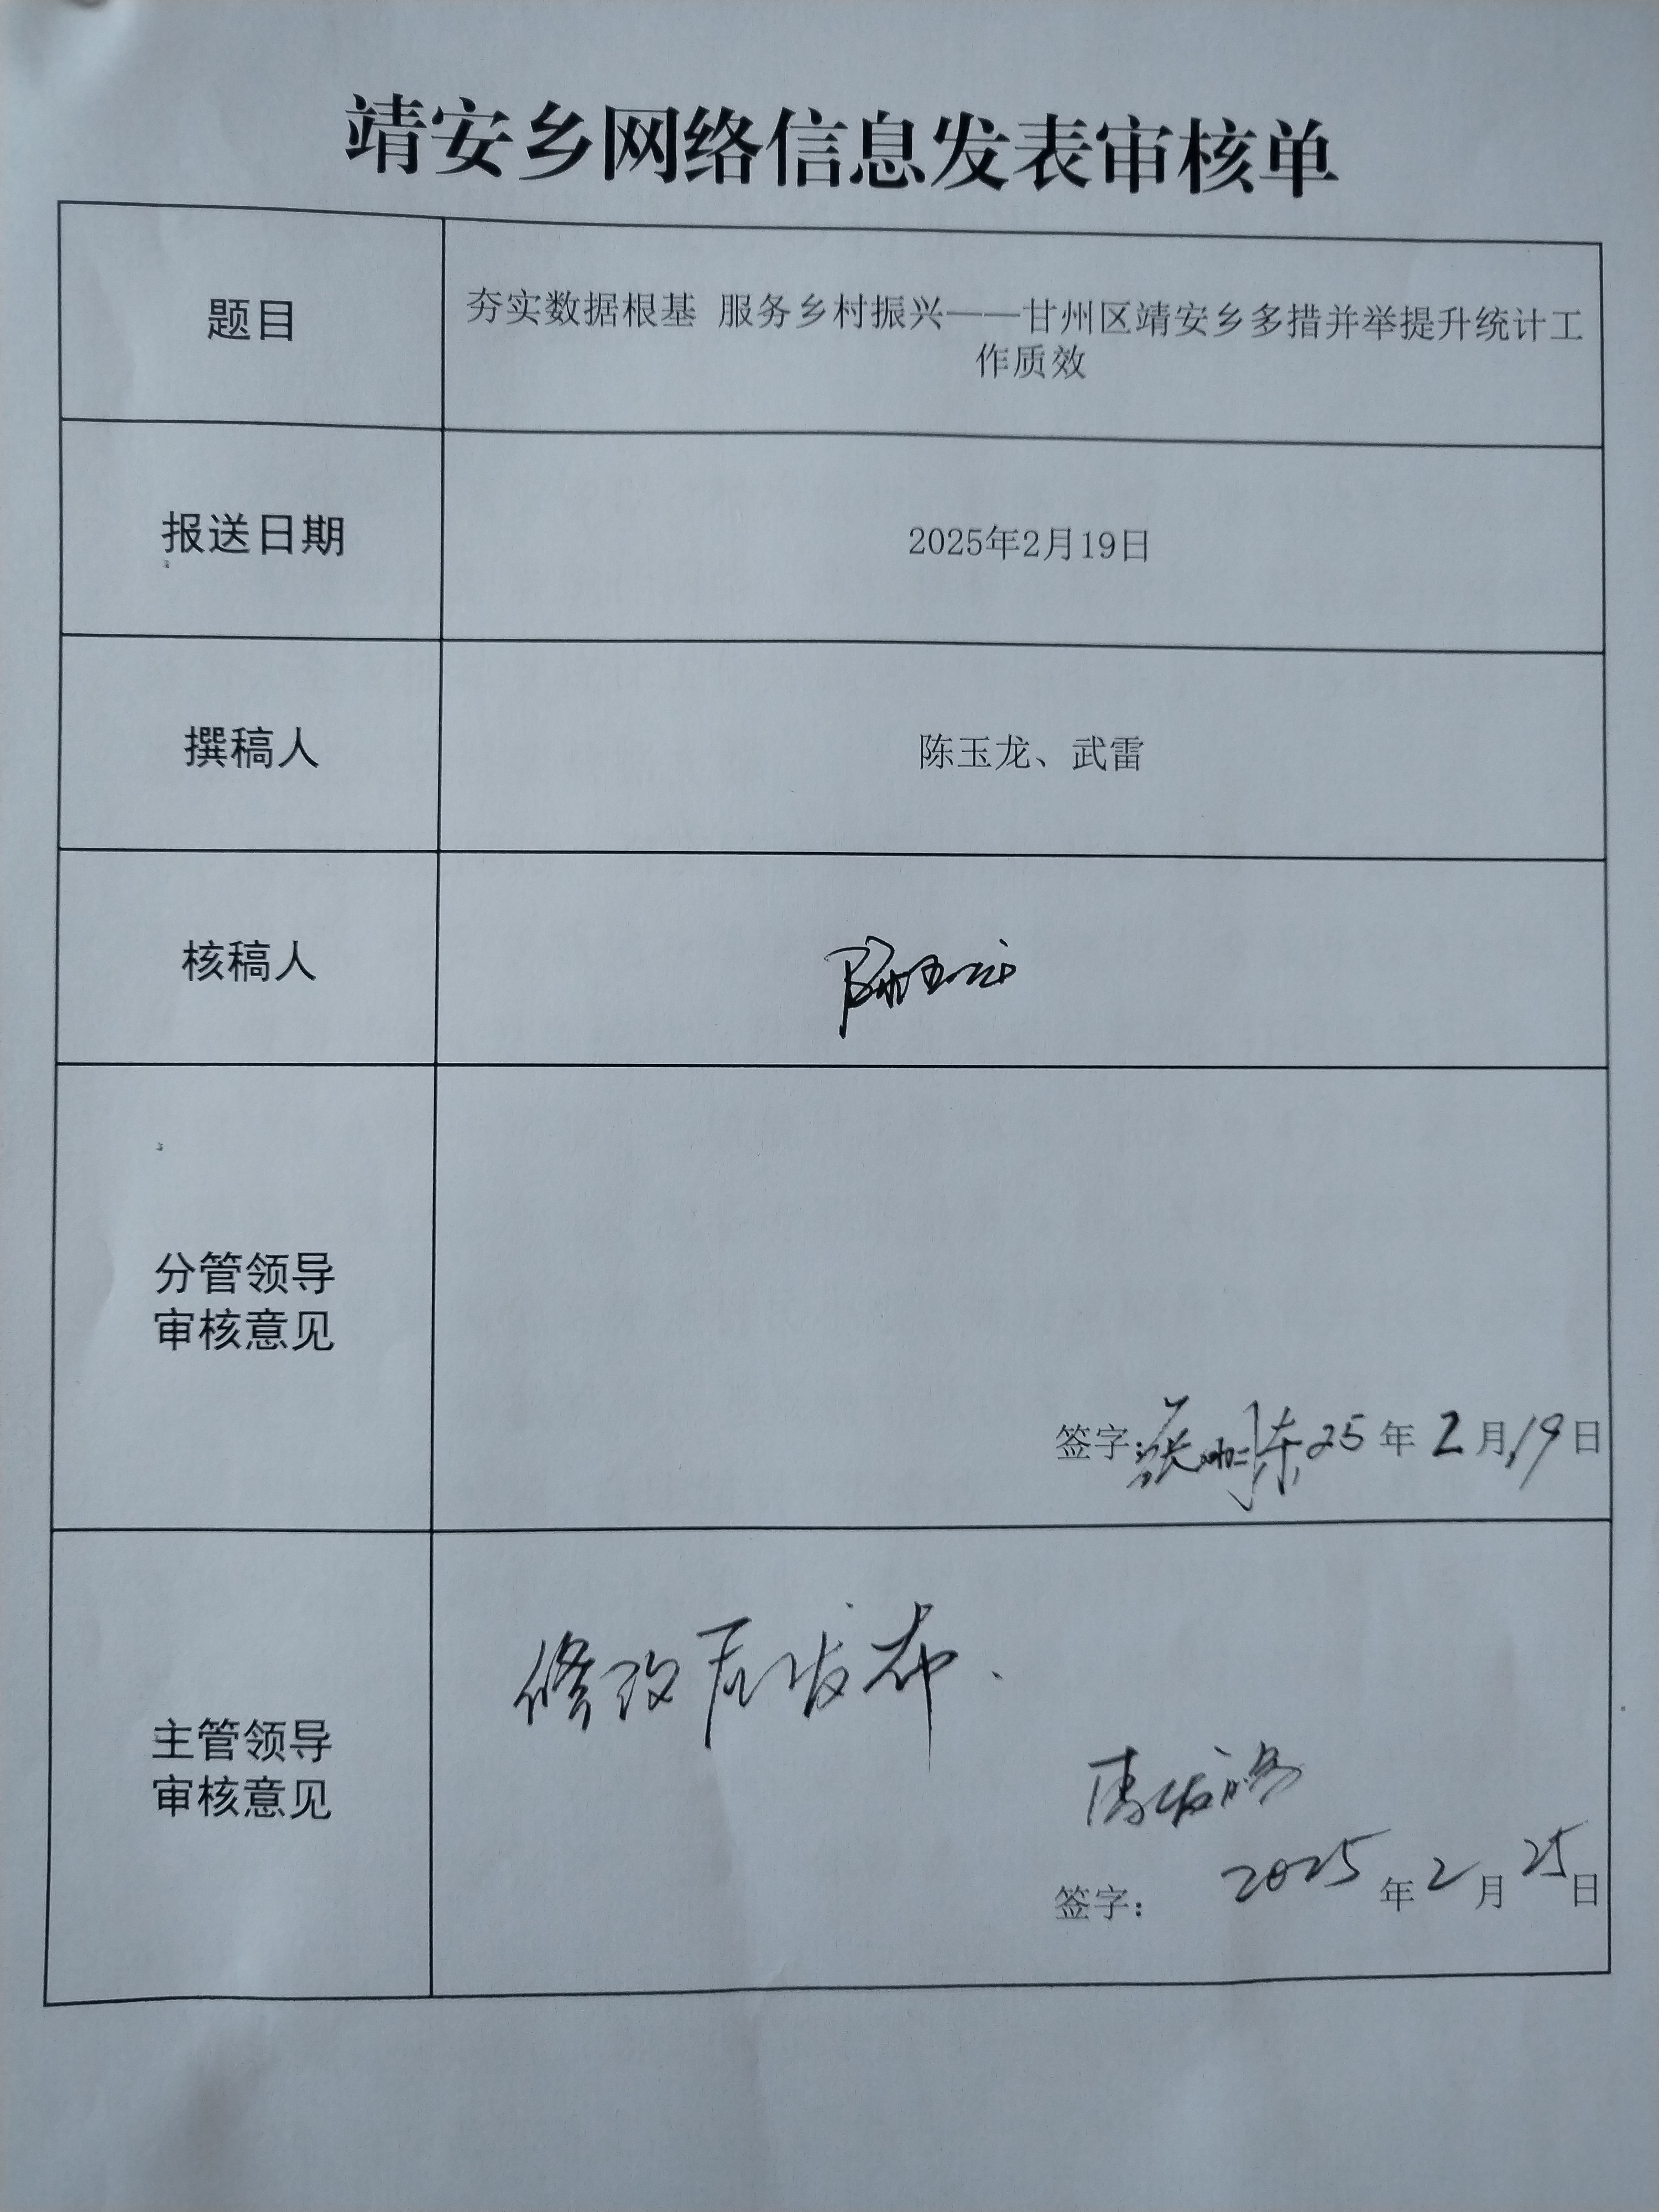 靖安乡网络信息发表审核单
题目
夯实数据根基 服务乡村振兴——甘州区靖安乡多措并举提升统计工
作质效
报送日期
2025年2月19日
撰稿人
陈玉龙、武雷
核稿人
陈玉龙
分管领导
审核意见
签字: 25年2月19日
主管领导
审核意见
修改后发布.
签字: 2025年2月25日